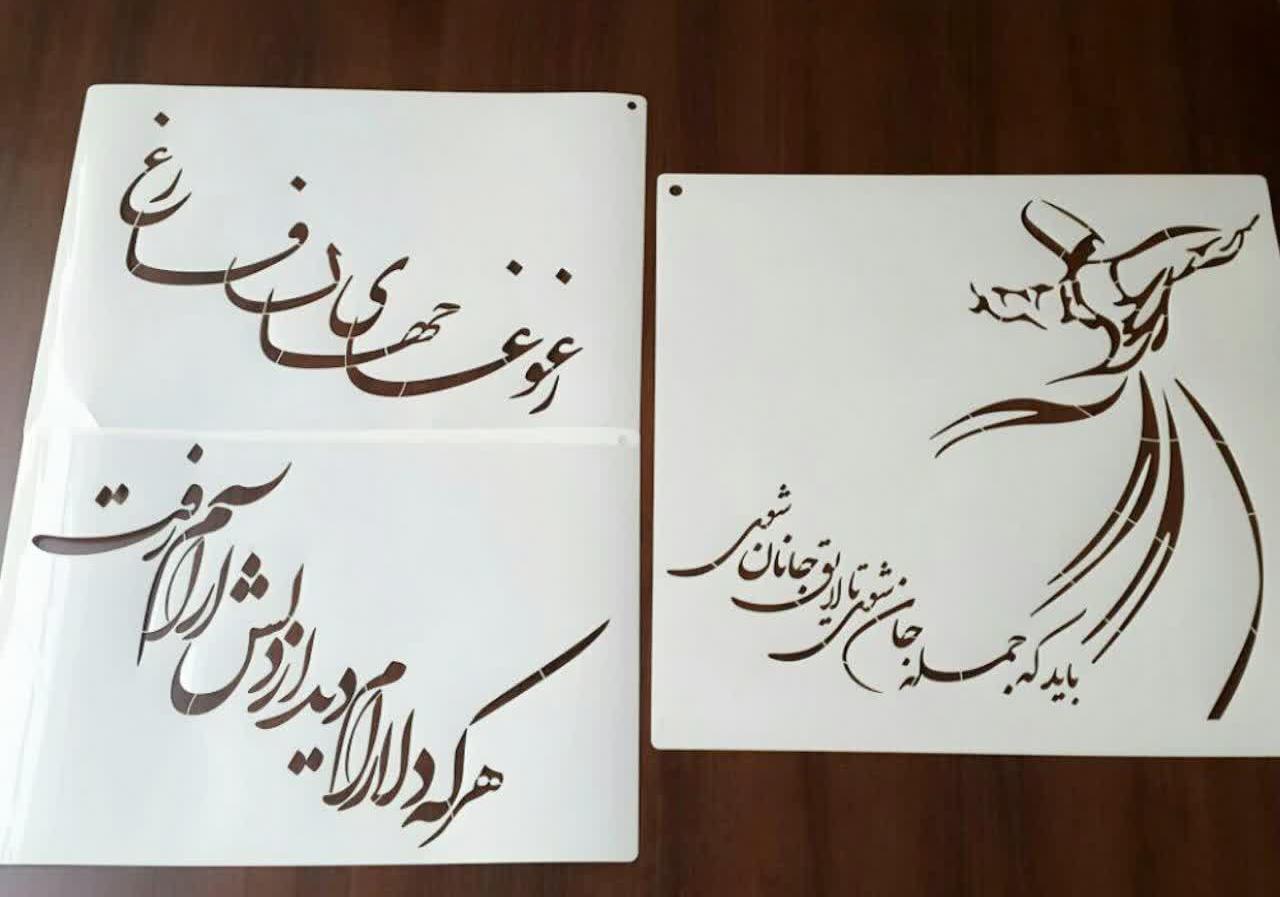 زغوغای جهان فارغ
هر که دلارام دید از دلش آرام رفت
باید که جمله جان شوی تا لایق جانان شوی